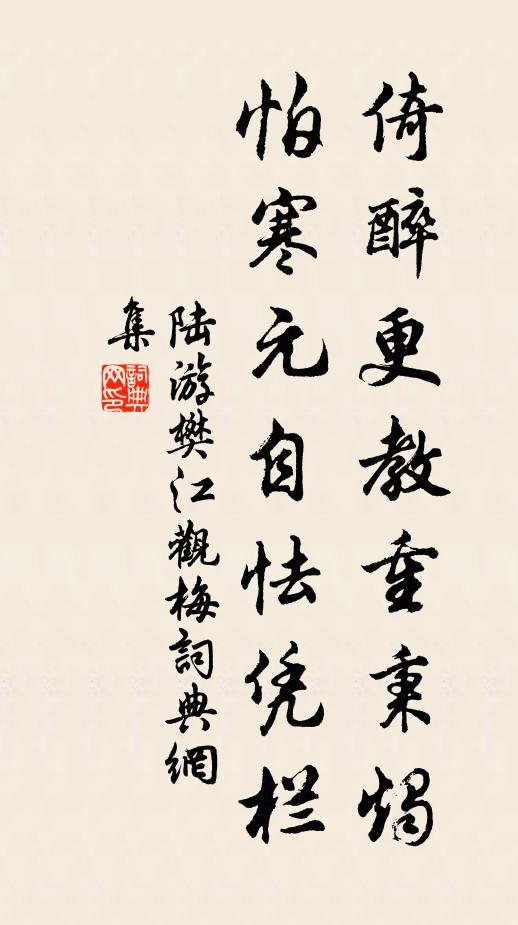 倚醉更教重秉烛
怕寒元自怯凭栏
陆游樊江觀梅詞典網
集
詞典
网印